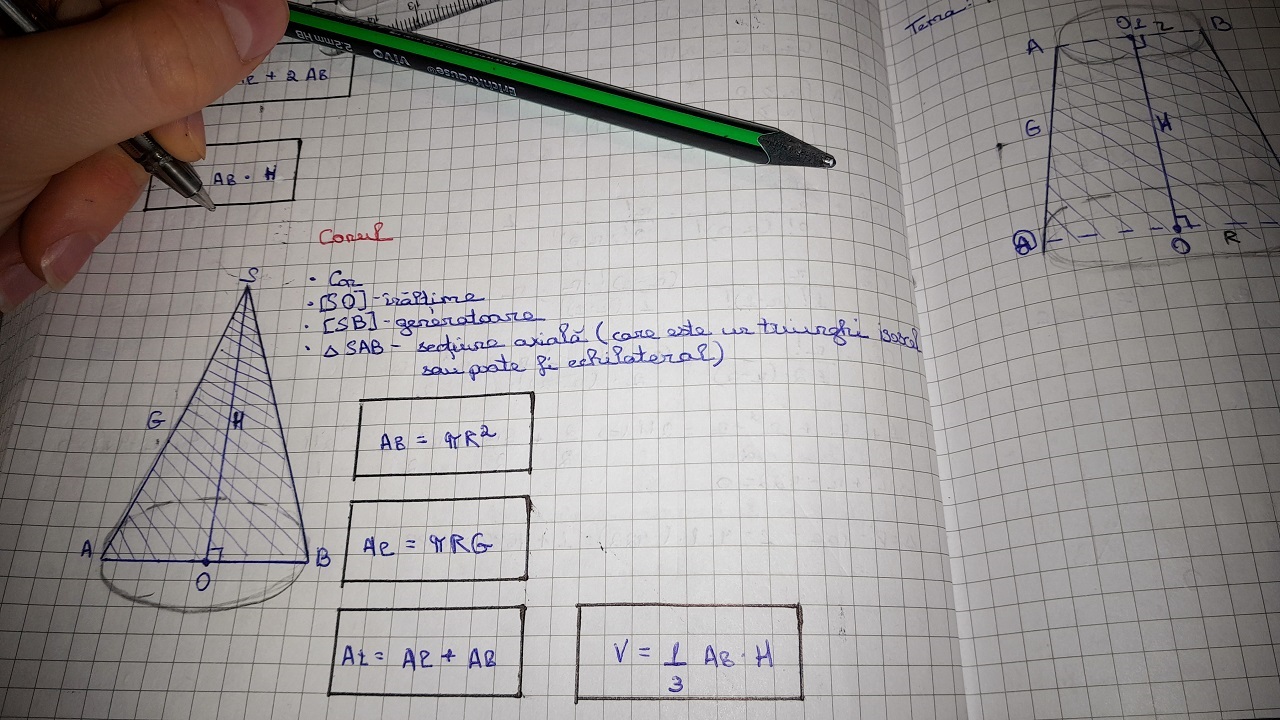 + 2 AB
AB · H
Conul
S
· Con
· [SO] - înălțime
· [SB] - generatoare
· △ SAB - secțiune axială (care este un triunghi isoscel
sau poate fi echilateral)
G
H
A
B
O
AB = πR²
Al = πRG
At = Al + AB
V = 1/3 AB · H
ErichKrause® VIVO 2.2mm HB
Tema:
O₁
r
B
A
G
H
A
O
R